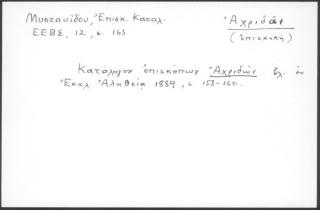 Μυστακίδου, Ἐπισκ. Καταλ.
ΕΕΒΣ, 12, σ. 163
Ἀχριδῶν
(ἐπισκοπή)
Κατάλογον ἐπισκόπων Ἀχριδῶν βλ. ἐν
Ἐκκλ. Ἀληθείᾳ 1889, σ. 158-160.